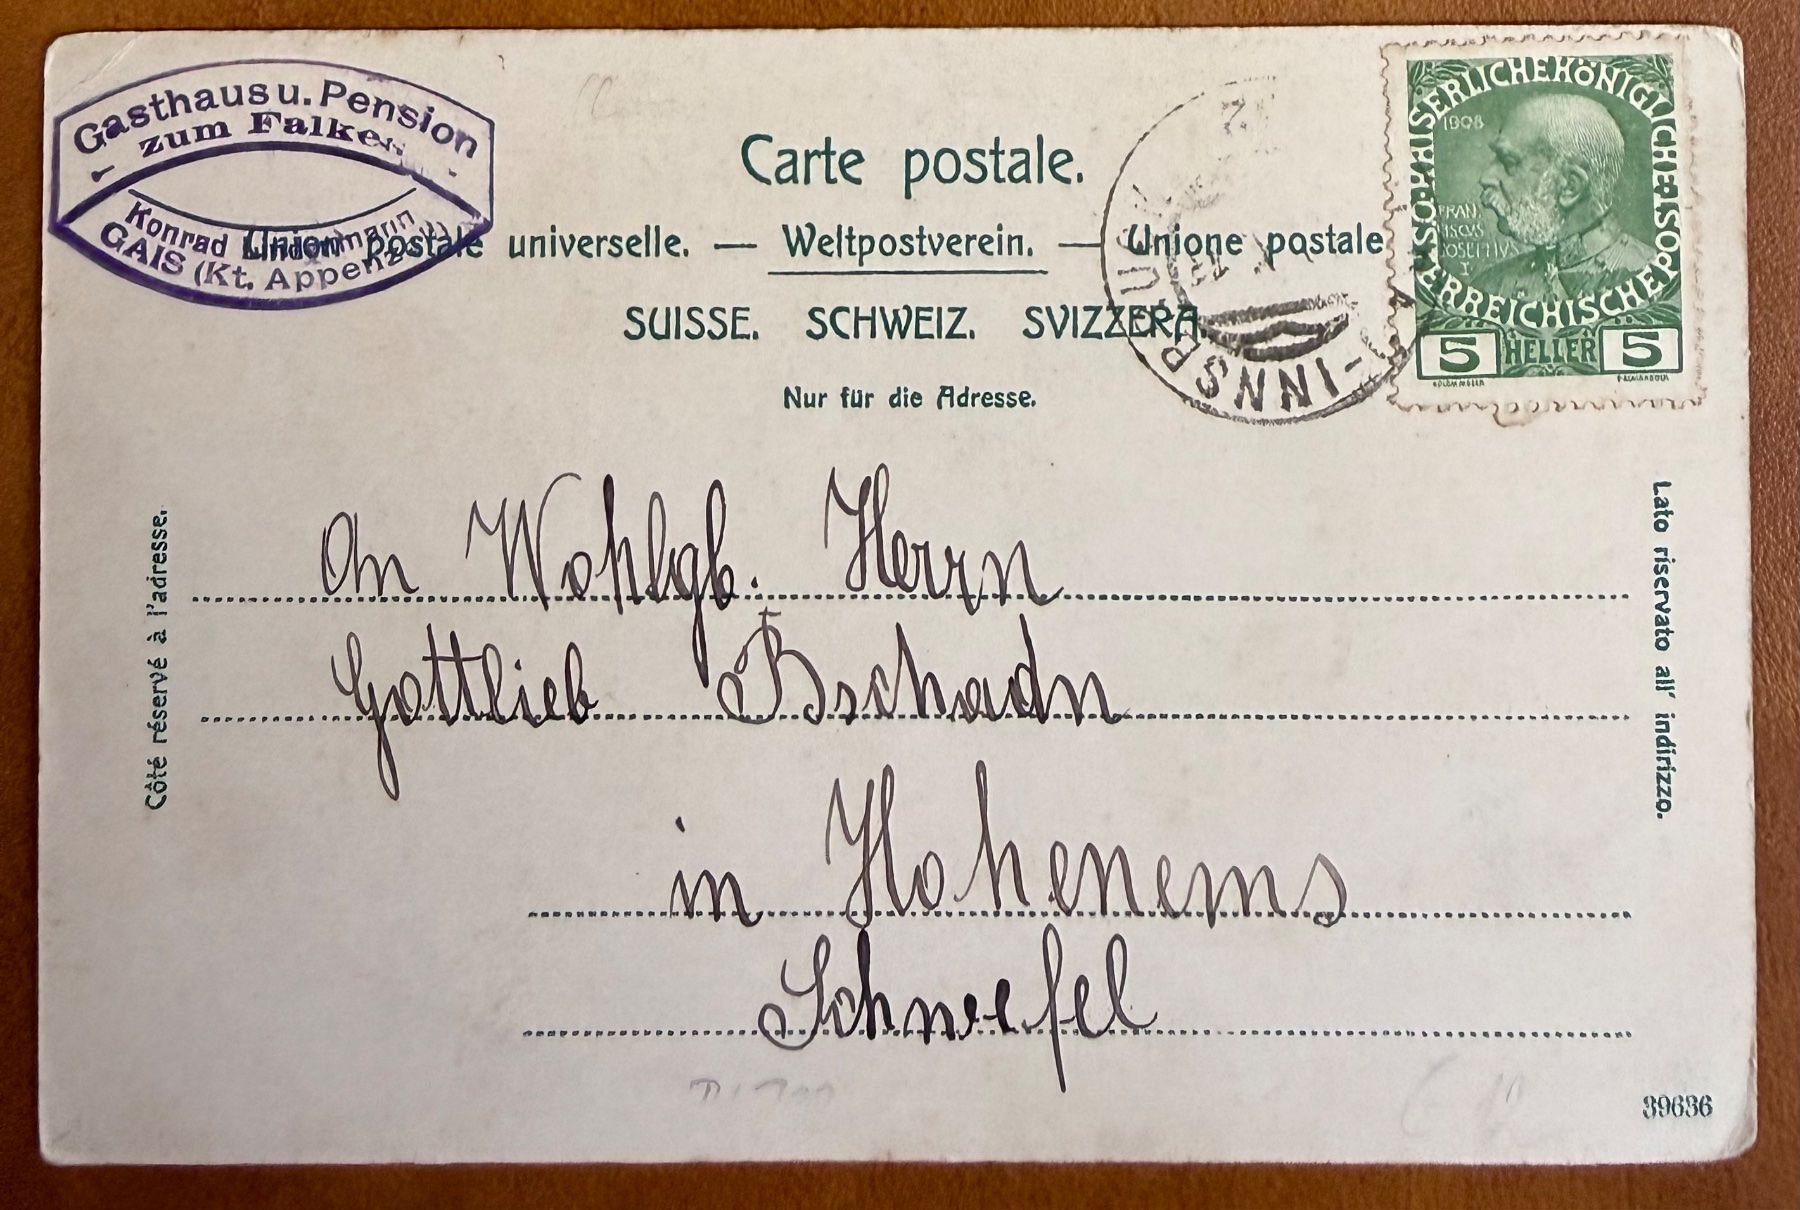 Gasthaus u. Pension
zum Falken
Konrad
GAIS (Kt. Appenzell)
Carte postale.
Union postale universelle. — Weltpostverein. — Unione postale
SUISSE. SCHWEIZ. SVIZZERA.
Nur für die Adresse.
KAISERLICHE KÖNIGLICHE ÖSTERREICHISCHE POST
1908
FRAN
CISCVS
IOSEPHVS
I
5 HELLER 5
INNSBRUCK
Côté réservé à l'adresse.
Lato riservato all' indirizzo.
An Wohlgb. Herrn
Gottlieb
in Hohenems
39636